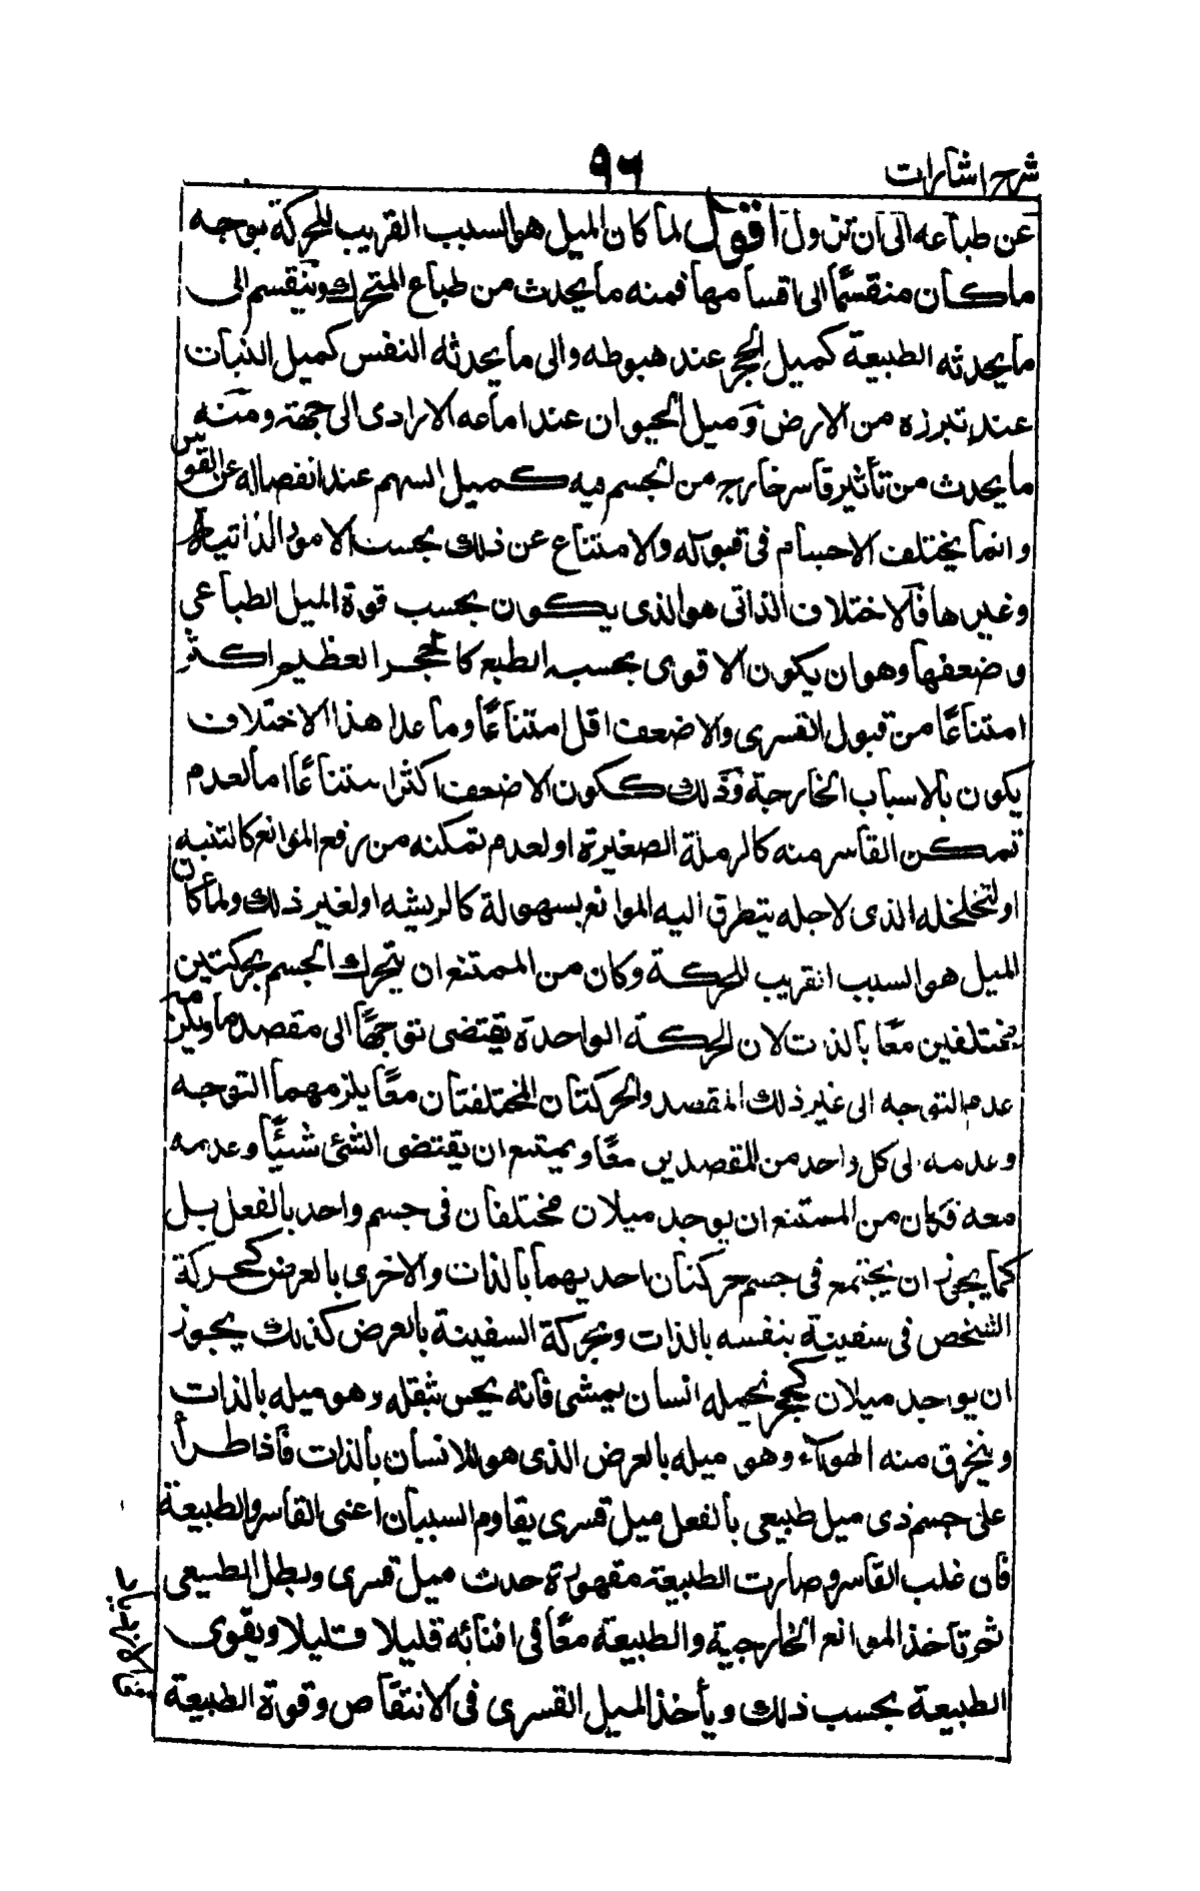 شرح اشارات
٩٦
عن طباعه الى ان تزول اقول لما كان الميل هو السبب القريب للحركة بوجه
ما كان منقسمًا الى اقسامها فمنه ما يحدث من طباع المتحرك وينقسم الى
ما يحدثه الطبيعة كميل الحجر عند هبوطه والى ما يحدثه النفس كميل النبات
عند تبرزه من الارض وميل الحيوان عند اماعه الارادى الى جهة ومنه
ما يحدث من تأثير قاسر خارج من الجسم فيه كميل السهم عند انفصاله عن القوس
وانما يختلف الاجسام فى قبوله والامتناع عن ذلك بحسب الامور الذاتية
وغيرها فالاختلاف الذاتى هو الذى يكون بحسب قوة الميل الطباعى
وضعفها وهو ان يكون الاقوى بحسب الطبع كالحجر العظيم اكثر
امتناعًا من قبول القسرى والاضعف اقل امتناعًا وما عدا هذا الاختلاف
يكون بالاسباب الخارجة وذلك ككون الاضعف اكثر امتناعًا اما لعدم
تمكن القاسر منه كالرملة الصغيرة او لعدم تمكنه من رفع الموانع كالتنبه
او لتخلخله الذى لاجله يتطرق اليه الموانع بسهولة كالريشه او لغير ذلك ولما كان
الميل هو السبب القريب للحركة وكان من الممتنع ان يتحرك الجسم بحركتين
مختلفين معًا بالذات لان الحركة الواحدة يقتضى توجهًا الى مقصد ما ويلزمه
عدم التوجه الى غير ذلك المقصد والحركتان المختلفتان معًا يلزمهما التوجه
وعدمه الى كل واحد من المقصدين معًا ويمتنع ان يقتضى الشئ شيئًا وعدمه
معه فكان من الممتنع ان يوجد ميلان مختلفان فى جسم واحد بالفعل بل
كما يجوز ان يجتمع فى جسم حركتان احديهما بالذات والاخرى بالعرض كحركة
الشخص فى سفينة بنفسه بالذات وبحركة السفينة بالعرض كذلك يجوز
ان يوجد ميلان كحجر يحمله انسان يمشى فانه يحس بثقله وهو ميله بالذات
وينخرق منه الهوآء وهو ميله بالعرض الذى هو للانسان بالذات فاذا طرأ
على جسم ذى ميل طبيعى بالفعل ميل قسرى يقاوم السببان اعنى القاسر والطبيعة
فان غلب القاسر وصارت الطبيعة مقهورة حدث ميل قسرى وبطل الطبيعى
ثم تاخذ الموانع الخارجية والطبيعة معًا فى افنائه قليلا قليلا ويقوى
الطبيعة بحسب ذلك ويأخذ الميل القسرى فى الانتقاص وقوة الطبيعة